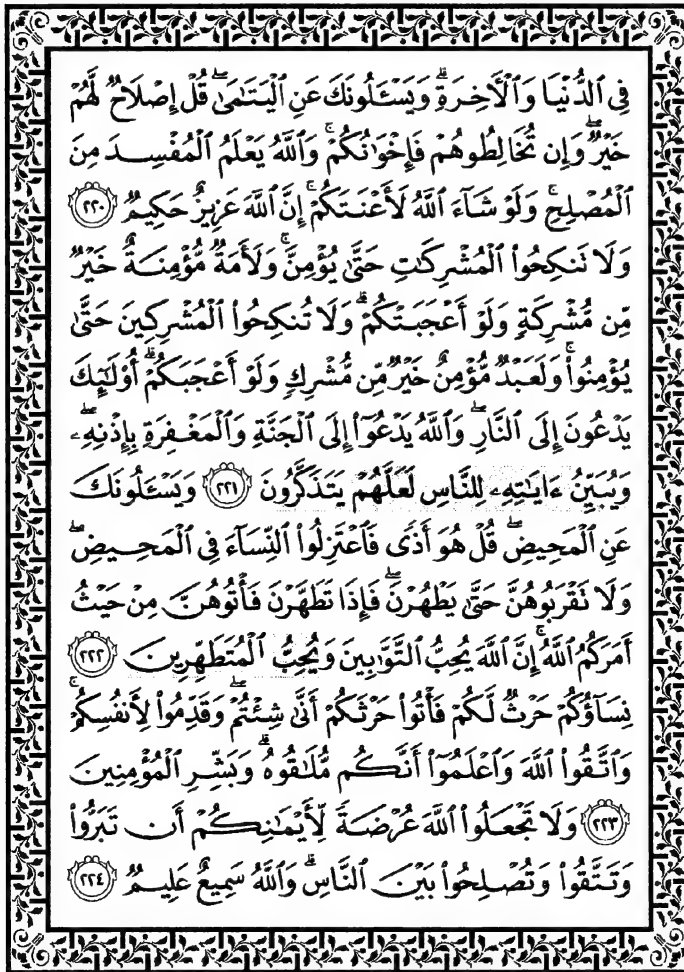 فِي ٱلدُّنۡيَا وَٱلۡأٓخِرَةِۗ وَيَسۡـَٔلُونَكَ عَنِ ٱلۡيَتَٰمَىٰۖ قُلۡ إِصۡلَاحٞ لَّهُمۡ
خَيۡرٞۖ وَإِن تُخَالِطُوهُمۡ فَإِخۡوَٰنُكُمۡۚ وَٱللَّهُ يَعۡلَمُ ٱلۡمُفۡسِدَ مِنَ
ٱلۡمُصۡلِحِۚ وَلَوۡ شَآءَ ٱللَّهُ لَأَعۡنَتَكُمۡۚ إِنَّ ٱللَّهَ عَزِيزٌ حَكِيمٞ ٢٢٠
وَلَا تَنكِحُواْ ٱلۡمُشۡرِكَٰتِ حَتَّىٰ يُؤۡمِنَّۚ وَلَأَمَةٞ مُّؤۡمِنَةٌ خَيۡرٞ
مِّن مُّشۡرِكَةٖ وَلَوۡ أَعۡجَبَتۡكُمۡۗ وَلَا تُنكِحُواْ ٱلۡمُشۡرِكِينَ حَتَّىٰ
يُؤۡمِنُواْۚ وَلَعَبۡدٞ مُّؤۡمِنٌ خَيۡرٞ مِّن مُّشۡرِكٖ وَلَوۡ أَعۡجَبَكُمۡۗ أُوْلَٰٓئِكَ
يَدۡعُونَ إِلَى ٱلنَّارِۖ وَٱللَّهُ يَدۡعُوٓاْ إِلَى ٱلۡجَنَّةِ وَٱلۡمَغۡفِرَةِ بِإِذۡنِهِۦۖ
وَيُبَيِّنُ ءَايَٰتِهِۦ لِلنَّاسِ لَعَلَّهُمۡ يَتَذَكَّرُونَ ٢٢١ وَيَسۡـَٔلُونَكَ
عَنِ ٱلۡمَحِيضِۖ قُلۡ هُوَ أَذٗى فَٱعۡتَزِلُواْ ٱلنِّسَآءَ فِي ٱلۡمَحِيضِۖ
وَلَا تَقۡرَبُوهُنَّ حَتَّىٰ يَطۡهُرۡنَۖ فَإِذَا تَطَهَّرۡنَ فَأۡتُوهُنَّ مِنۡ حَيۡثُ
أَمَرَكُمُ ٱللَّهُۚ إِنَّ ٱللَّهَ يُحِبُّ ٱلتَّوَّٰبِينَ وَيُحِبُّ ٱلۡمُتَطَهِّرِينَ ٢٢٢
نِسَآؤُكُمۡ حَرۡثٞ لَّكُمۡ فَأۡتُواْ حَرۡثَكُمۡ أَنَّىٰ شِئۡتُمۡۖ وَقَدِّمُواْ لِأَنفُسِكُمۡۚ
وَٱتَّقُواْ ٱللَّهَ وَٱعۡلَمُوٓاْ أَنَّكُم مُّلَٰقُوهُۗ وَبَشِّرِ ٱلۡمُؤۡمِنِينَ
٢٢٣ وَلَا تَجۡعَلُواْ ٱللَّهَ عُرۡضَةٗ لِّأَيۡمَٰنِكُمۡ أَن تَبَرُّواْ
وَتَتَّقُواْ وَتُصۡلِحُواْ بَيۡنَ ٱلنَّاسِۚ وَٱللَّهُ سَمِيعٌ عَلِيمٞ ٢٢٤